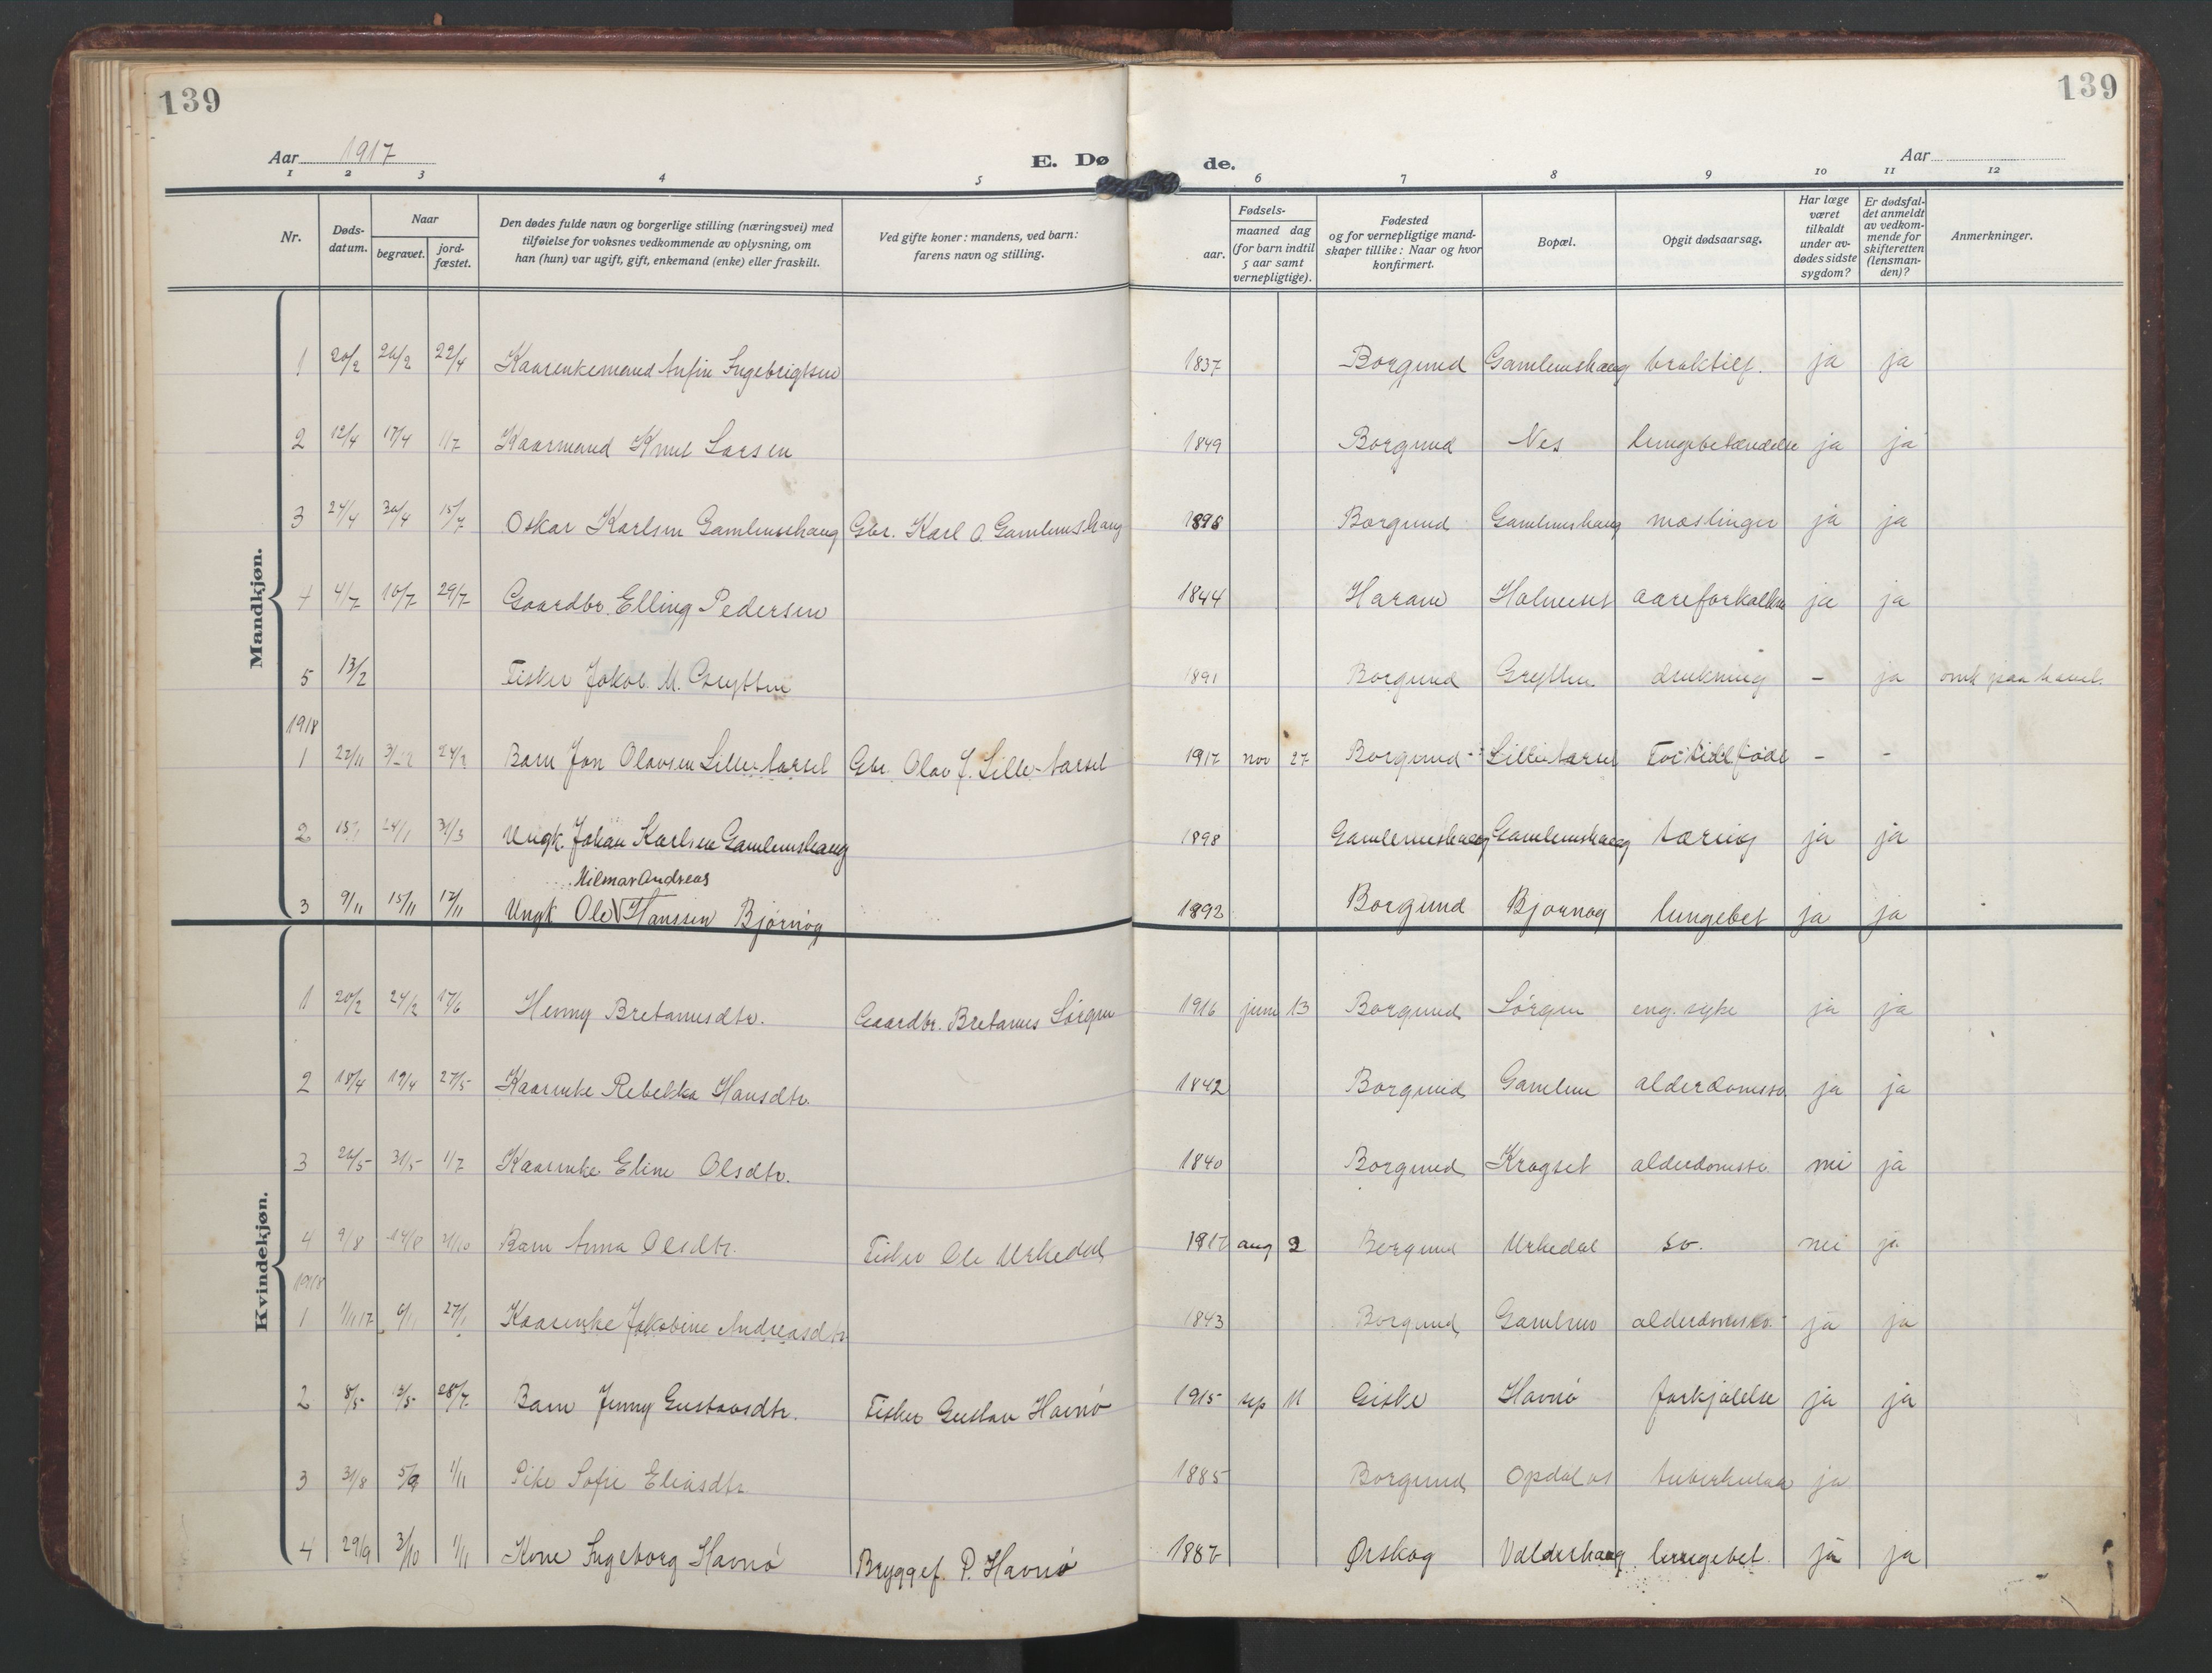 139
139
Aar 1917
E. Dø
de.
Aar
1 2 3 4 5 6 7 8 9 10 11 12
Nr.
Døds-
datum.
Naar
begravet.
jord-
fæstet.
Den dødes fulde navn og borgerlige stilling (næringsvei) med
tilføielse for voksnes vedkommende av oplysning, om
han (hun) var ugift, gift, enkemand (enke) eller fraskilt.
Ved gifte koner: mandens, ved barn:
farens navn og stilling.
Fødsels-
aar.
maaned dag
(for barn indtil
5 aar samt
vernepligtige).
Fødested
og for vernepligtige mand-
skaper tillike: Naar og hvor
konfirmert.
Bopæl.
Opgit dødsaarsag.
Har læge
været
tilkaldt
under av-
dødes sidste
sygdom?
Er dødsfal-
det anmeldt
av vedkom-
mende for
skifteretten
(lensman-
den)?
Anmerkninger.
Mandkjøn.
1 20/2 26/2 22/4 Kaarenkemand Anfin Ingebrigtsen 1837 Borgund Gamlemshaug ja ja
2 12/4 17/4 1/7 Kaarmand Knut Larsen 1849 Borgund Nes lungebetændelse ja ja
3 24/4 30/4 15/7 Oskar Karlsen Gamlemshaug Gbr. Karl O. Gamlemshaug 1896 Borgund Gamlemshaug meslinger ja ja
4 4/7 10/7 29/7 Gaardbr. Elling Pedersen 1844 Haram Holmeset aareforkalkn ja ja
5 13/2 Fisker Jakob M. Grytten 1891 Borgund Grytten drukning - ja omk paa havet.
1918
1 3/12 24/2 Barn Jon Olavsen Lille-Aarset Gbr. Olav J. Lille-Aarset 1917 nov 27 Borgund Lille-Aarset For tidl. født - -
2 15/1 24/1 31/3 Ungk. Johan Karlsen Gamlemshaug 1898 Gamlemshaug Gamlemshaug tæring ja ja
Hilmar Andreas
3 9/11 15/11 17/11 Ungk Ole V Hanssen Bjørnøg 1892 Borgund Bjørnøg lungebet ja ja
Kvindekjøn.
1 20/2 24/2 17/6 Henny Bretannesdtr. Gaardbr. Bretannes Sørgjer 1916 juni 13 Borgund eng. syke ja ja
2 15/4 19/4 27/5 Kaarenke Rebekka Hansdtr. 1842 Borgund Gamlem alderdomssv ja ja
3 26/5 31/5 1/7 Kaarenke Eline Olsdtr. 1840 Borgund Krogset alderdomssv. nei ja
4 9/8 14/8 21/10 Barn Anna Olsdtr. Fisker Ole Urkedal 1917 aug 2 Borgund Urkedal sv. nei ja
1918
1 1/11 17 6/1 27/1 Kaarenke Jakobine Andreasdtr 1843 Borgund Gamlem alderdomssv. ja ja
2 8/5 13/5 28/7 Barn Jenny Gustavsdtr. Fisker Gustav Havnø 1915 sep 11 Giske Havnø forkjølelse ja ja
3 31/8 5/9 1/11 Pike Sofie Eliasdtr 1885 Borgund Opdal tuberkulose ja
4 29/9 3/10 1/11 Kone Ingeborg Havnø Bryggef. P. Havnø 1887 Ørskog Valderhaug lungebet. ja ja